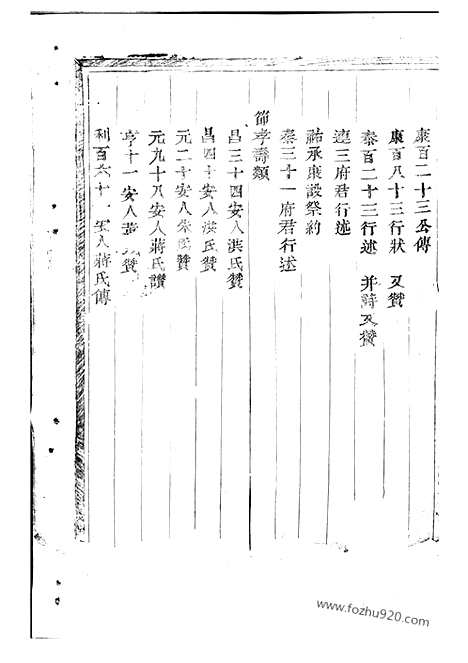 康百二十三公傳
康百八十三行狀 又贊
泰百二十三行述 并詩又贊
連三府君行述
祐承康設祭約
泰三十一府君行述
節孝壽類
昌三十四安人洪氏贊
昌四十安人洪氏贊
元二十安人朱氏贊
元九十八安人蔣氏讚
亨十一安人 氏贊
利百六十 安人蔣氏傳
www.fozhu920.com